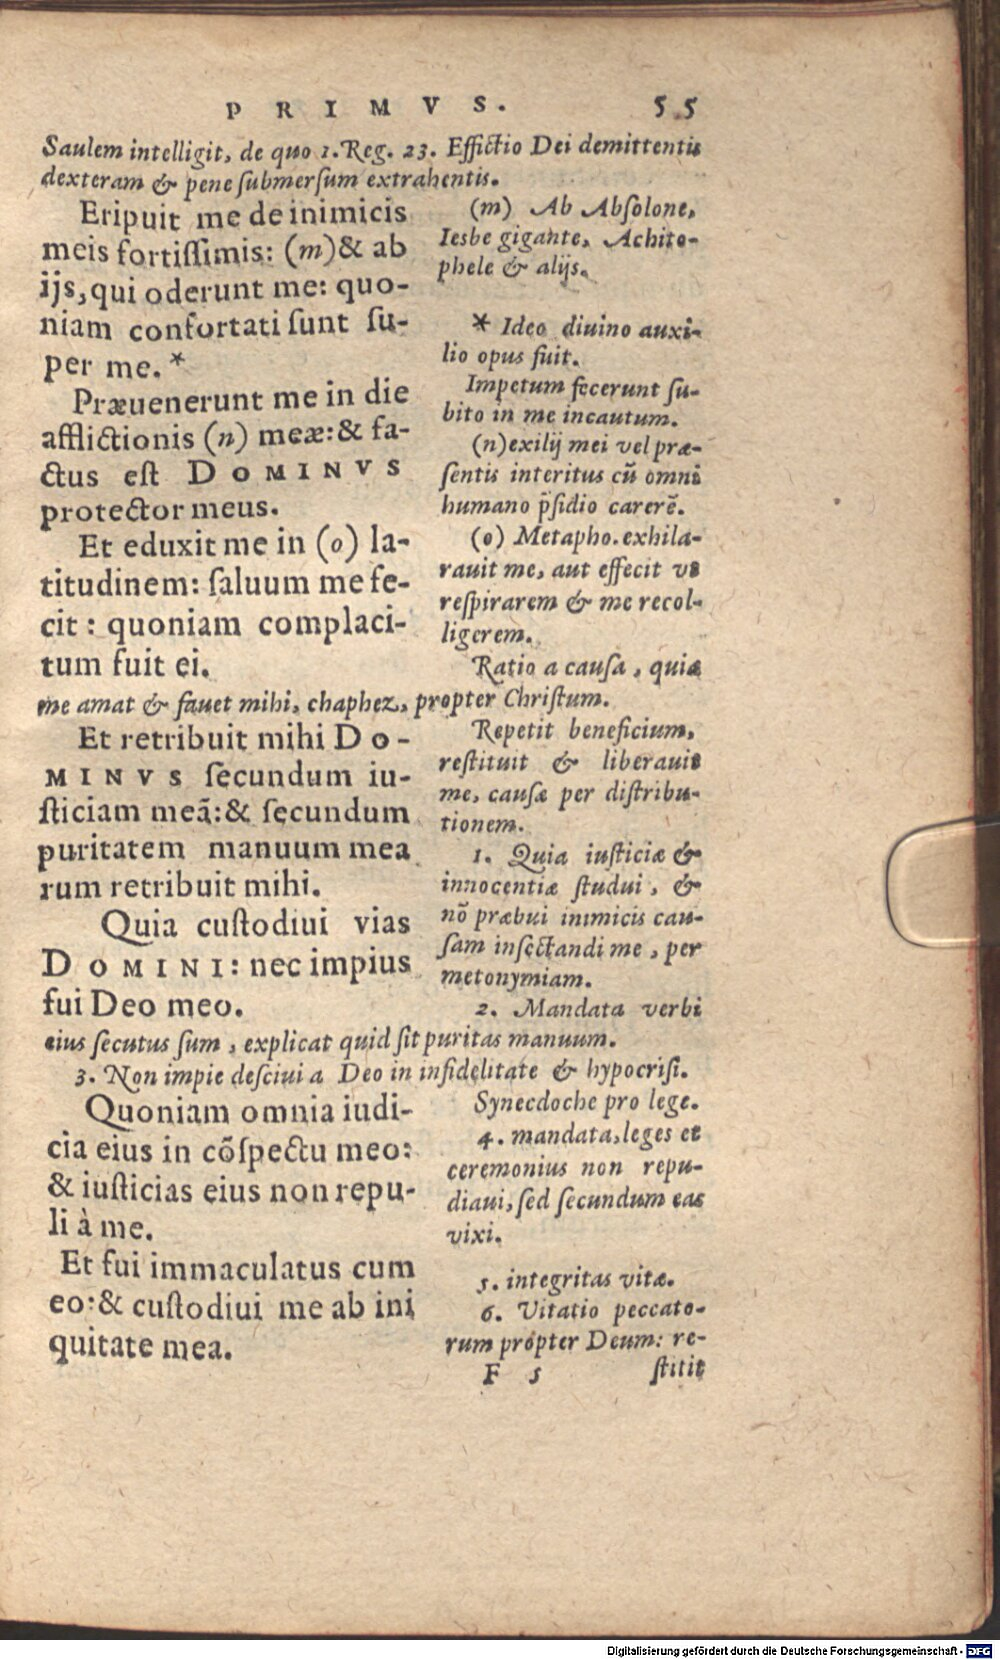 PRIMVS. 55
Saulem intelligit, de quo 1. Reg. 23. Effictio Dei demittentis
dexteram & pene ſubmerſum extrahentis.
Eripuit me de inimicis
meis fortiſſimis: (m) & ab
ijs, qui oderunt me: quo-
niam confortati ſunt ſu-
per me. *
(m) Ab Abſolone,
Iesbe gigante, Achito-
phele & alijs.
* Ideo diuino auxi-
lio opus fuit.
Præuenerunt me in die
afflictionis (n) meæ: & fa-
ctus eſt DOMINVS
protector meus.
Impetum fecerunt ſu-
bito in me incautum.
(n) exilij mei vel præ-
ſentis interitus cū omni
humano p̄ſidio carerē.
Et eduxit me in (o) la-
titudinem: ſaluum me fe-
cit: quoniam complaci-
tum fuit ei.
(o) Metapho. exhila-
rauit me, aut effecit vt
reſpirarem & me recol-
ligerem.
Ratio a cauſa, quia
me amat & fauet mihi, chaphez, propter Chriſtum.
Et retribuit mihi DO-
MINVS ſecundum iu-
ſticiam meā: & ſecundum
puritatem manuum mea
rum retribuit mihi.
Repetit beneficium,
reſtituit & liberauit
me, cauſæ per diſtribu-
tionem.
1. Quia iuſticiæ &
innocentiæ ſtudui, &
nō præbui inimicis cau-
ſam inſectandi me, per
metonymiam.
Quia cuſtodiui vias
DOMINI: nec impius
fui Deo meo.
2. Mandata verbi
eius ſecutus ſum, explicat quid ſit puritas manuum.
3. Non impie deſciui a Deo in infidelitate & hypocriſi.
Quoniam omnia iudi-
cia eius in cōſpectu meo:
& iuſticias eius non repu-
li à me.
Synecdoche pro lege.
4. mandata, leges et
ceremonius non repu-
diaui, ſed ſecundum eas
vixi.
Et fui immaculatus cum
eo: & cuſtodiui me ab ini
quitate mea.
5. integritas vitæ.
6. Vitatio peccato-
rum propter Deum: re-
F 5 ſtitit
Digitalisierung gefördert durch die Deutsche Forschungsgemeinschaft - DFG